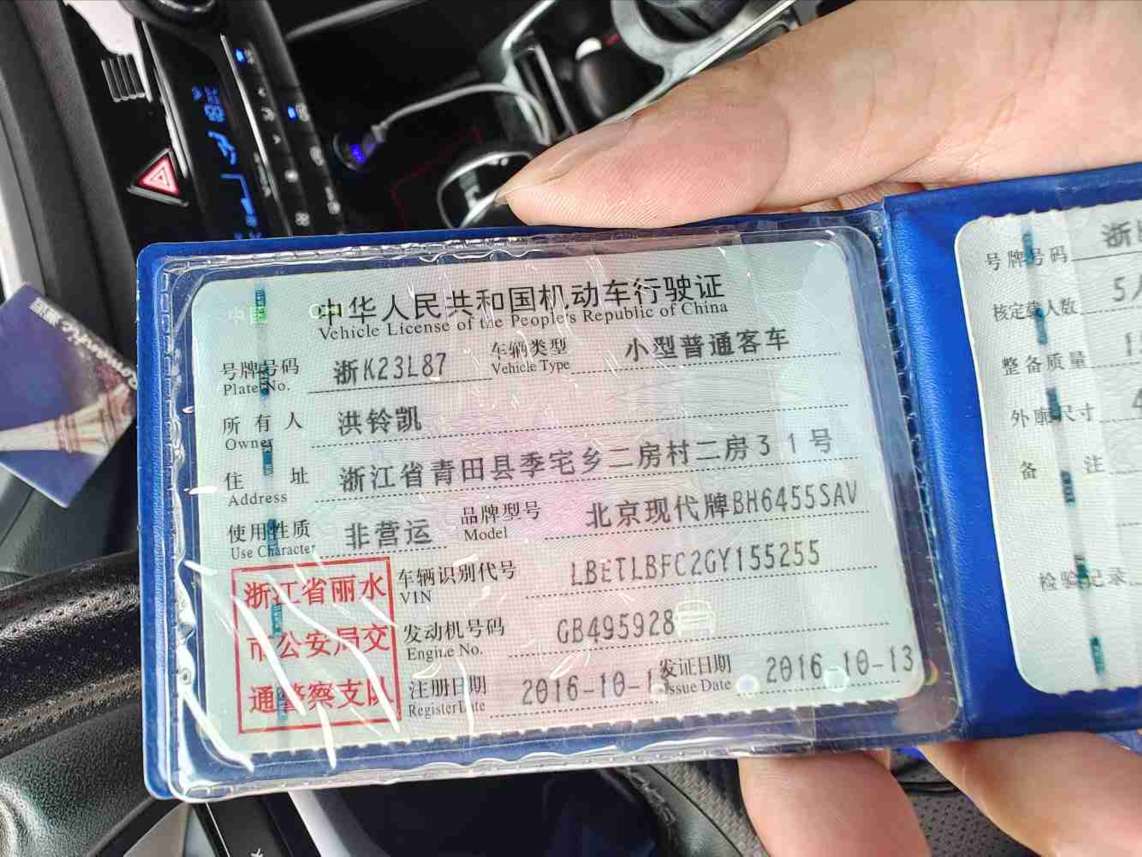 中华人民共和国机动车行驶证
Vehicle License of the People's Republic of China
号牌号码 浙K23L87 车辆类型 小型普通客车
Plate No. Vehicle Type
所有人 洪铃凯
Owner
住址 浙江省青田县季宅乡二房村二房31号
Address
使用性质 非营运 品牌型号 北京现代牌BH6455SAV
Use Character Model
浙江省丽水
市公安局交
通警察支队
车辆识别代号 LBETLBFC2GY155255
VIN
发动机号码 GB495928
Engine No.
注册日期 2016-10-13 发证日期 2016-10-13
Register Date Issue Date
号牌号码 浙
核定载人数 5
整备质量 1
外廓尺寸 4
备注
检验记录